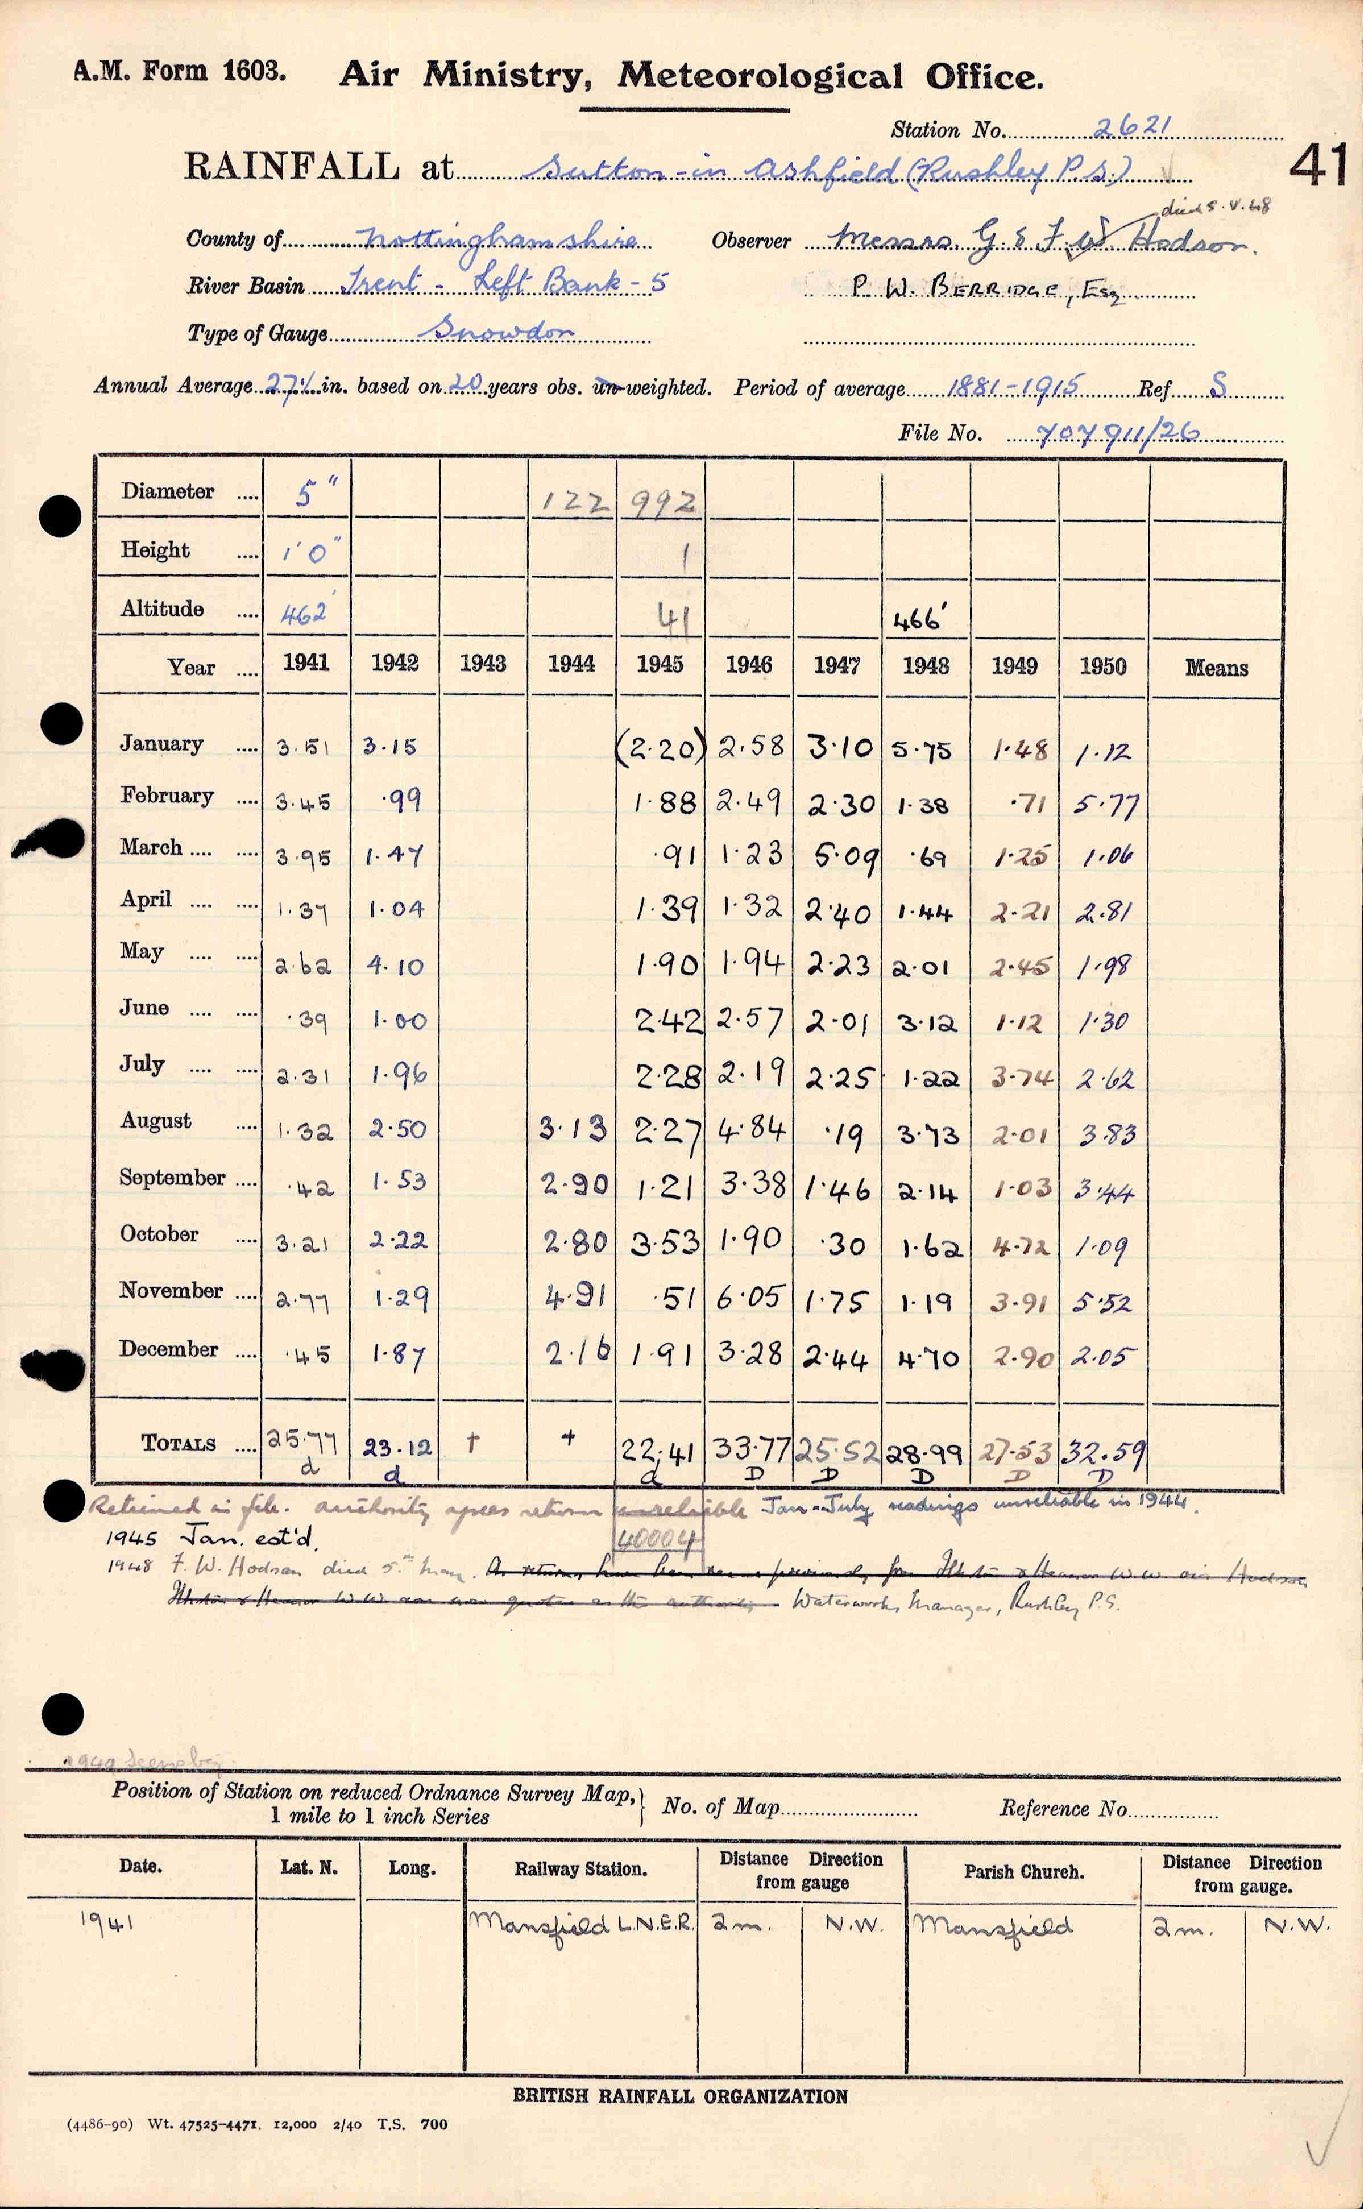 A.M. Form 1603. Air Ministry, Meteorological Office.
Station No. 2621
41
RAINFALL at Sutton-in Ashfield (Rushley P.S.)
died 5.V.48
County of Nottinghamshire Observer Messrs. G. & F. W. Hodson.
River Basin Trent - Left Bank - 5 P. W. BERRIDGE, Esq
Type of Gauge Snowdon
Annual Average in. based on 20 years obs. un-weighted. Period of average 1881-1915 Ref S
File No. 707911/26
Diameter .... 5" 122 992
Height .... 1'0" 1
Altitude .... 462' 41 466'
Year .... 1941 1942 1943 1944 1945 1946 1947 1948 1949 1950 Means
January .... 3.51 3.15 (2.20) 2.58 3.10 5.75 1.48 1.12
February .... 3.45 .99 1.88 2.49 2.30 1.38 .71 5.77
March .... .... 3.95 1.47 .91 1.23 5.09 .69 1.25 1.06
April .... .... 1.37 1.04 1.39 1.32 2.40 1.44 2.21 2.81
May .... .... 2.62 4.10 1.90 1.94 2.23 2.01 2.45 1.98
June .... .... .39 1.00 2.42 2.57 2.01 3.12 1.12 1.30
July .... .... 2.31 1.96 2.28 2.19 2.25 1.22 3.74 2.62
August .... 1.32 2.50 3.13 2.27 4.84 .19 3.73 2.01 3.83
September .... .42 1.53 2.90 1.21 3.38 1.46 2.14 1.03 3.44
October .... 3.21 2.22 2.80 3.53 1.90 .30 1.62 4.72 1.09
November .... 2.77 1.29 4.91 .51 6.05 1.75 1.19 3.91 5.52
December .... .45 1.87 2.16 1.91 3.28 2.44 4.70 2.90 2.05
TOTALS .... 25.77 23.12 † + 22.41 33.77 25.52 28.99 27.53 32.59
d d d D D D D D
Retained in file. authority agrees return unreliable Jan-July readings unreliable in 1944.
1945 Jan. est'd. 40004
1948 F. W. Hodson died 5th May.
Waterworks Manager, Rushley P.S.
1949
Position of Station on reduced Ordnance Survey Map, } No. of Map Reference No.
1 mile to 1 inch Series
Date. Lat. N. Long. Railway Station. Distance Direction from gauge Parish Church. Distance Direction from gauge.
1941 Mansfield L.N.E.R. 2m. N.W. Mansfield 2m. N.W.
BRITISH RAINFALL ORGANIZATION
(4486-90) Wt. 47525-4471. 12,000 2/40 T.S. 700